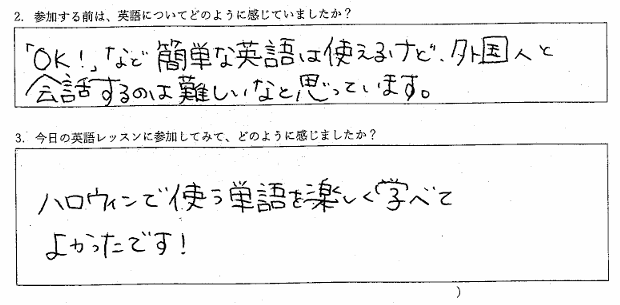 2. 参加する前は、英語についてどのように感じていましたか？
「OK！」など簡単な英語は使えるけど、外国人と
会話するのは難しいなと思っています。
3. 今日の英語レッスンに参加してみて、どのように感じましたか？
ハロウィンで使う単語を楽しく学べて
よかったです！
）